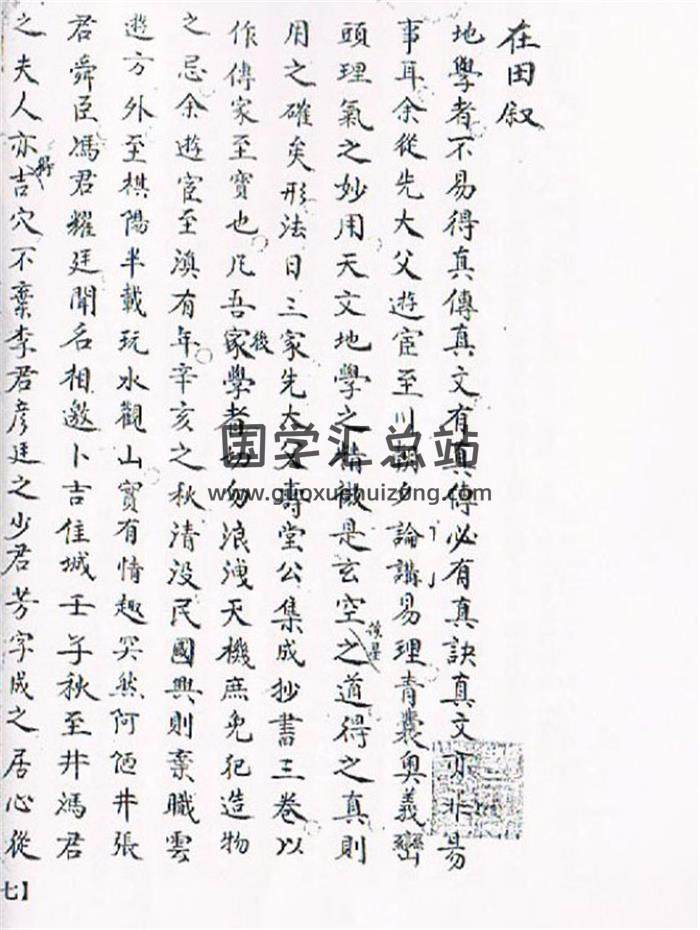 在田叙
地學者不易得真傳真文有真傳必有真訣真文亦非易
事耳余從先大父遊宦至川朝夕論講易理青囊奧義巒
頭理氣之妙用天文地學之精微是玄空之道得之真則
挨星
用之確矣形法日三家先大父壽堂公集成抄書三卷以
作傳家至寶也凡吾家後學者切勿浪洩天機庶免犯造物
之忌余遊宦至滇有年辛亥之秋清没民國興則棄職雲
遊方外至棋陽半載玩水觀山實有情趣突然阿陋井張
君舜臣馮君耀廷聞名相邀卜吉佳城壬子秋至井馮君
之夫人亦得吉穴不棄李君彦廷之少君芳字成之居心從
七】
国学汇总站
www.guoxuehuizong.com